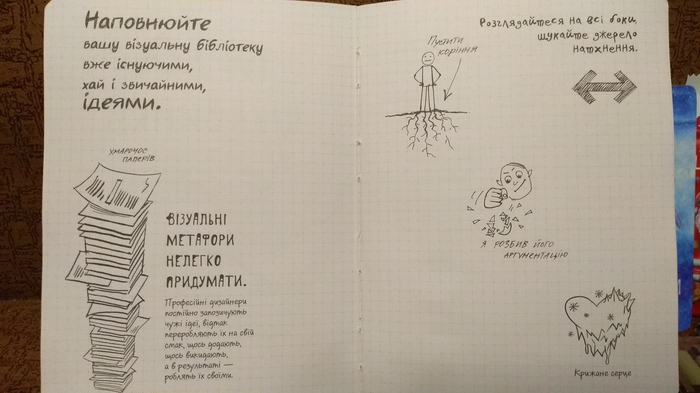 Наповнюйте
вашу візуальну бібліотеку
вже існуючими,
хай і звичайними,
ідеями.
ХМАРОЧОС
ПАПЕРІВ
ВІЗУАЛЬНІ
МЕТАФОРИ
НЕЛЕГКО
ПРИДУМАТИ.
Професійні дизайнери
постійно запозичують
чужі ідеї, відтак
переробляють їх на свій
смак, щось додають,
щось викидають,
а в результаті —
роблять їх своїми.
Розглядайтеся на всі боки,
шукайте джерело
натхнення.
Пустити
коріння
Я РОЗБИВ ЙОГО
АРГУМЕНТАЦІЮ
Крижане серце